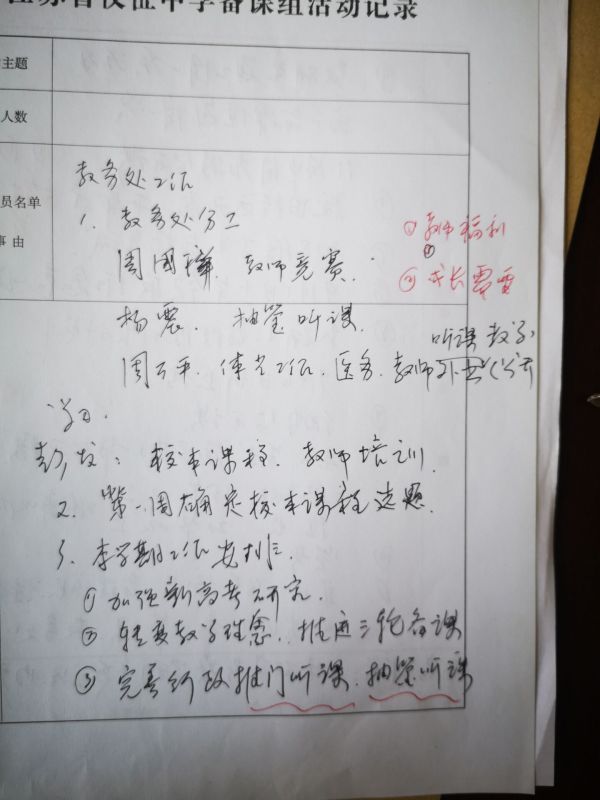 江苏省仪征中学备课组活动记录
主题
人数
员名单
事由
教务处工作
1. 教务处分工
① 教师福利
周国 教师竞赛.
② 成长需要
杨震. 抽签听课.
听课 教学
周万平. 体艺工作. 医务. 教师
彭 : 校本课程. 教师培训.
2. 第一周确定校本课程选题.
3. 本学期工作安排.
① 加强新高考研究.
② 转变教学理念. 推进三轮备课
③ 完善行政推门听课. 抽签听课